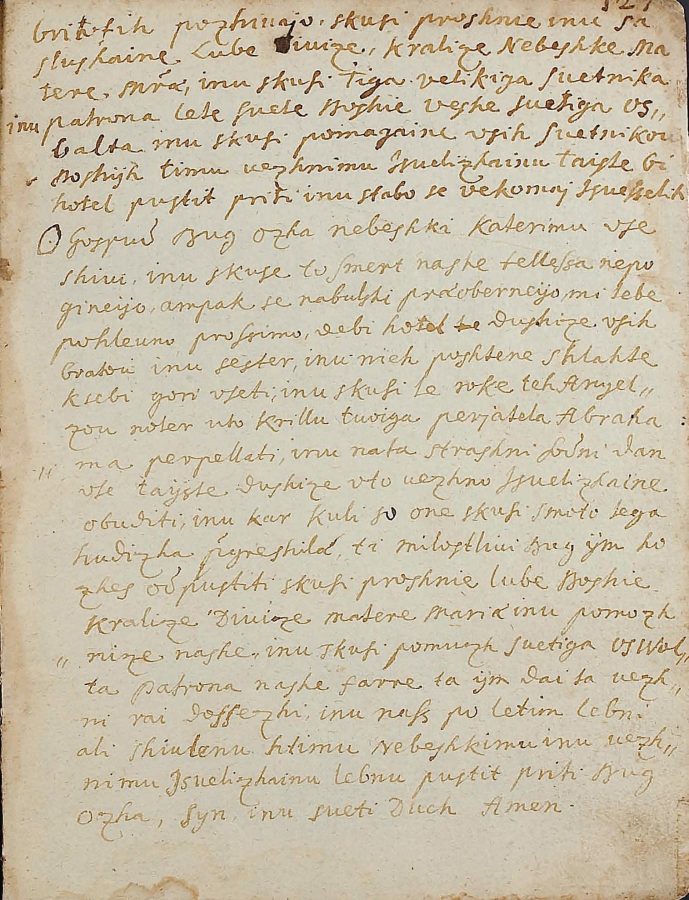 britofih pozhivajo, skusi proshnie inu sa
slushaine Lube Divize,, Kralize Nebeshke Ma
tere, Mra, inu skusi tiga velikiga svetnika
inu patrona lete svete Boshie veshe svetiga Os,,
balta inu skusi pomagaine vsih Svetnikou
Boshyh timu vezhnimu Isvelizhainu taiste bi
hotel pustit priti inu stabo se vekomaj Isvesselit
O Gospud Bug Ozha nebeshki Katerimu vse
shivi, inu skuse to smert nashe tellessa nepo
gineijo, ampak se nabulshi praoberneijo, mi tebe
pohleuno prossimo, de bi hotel te dushize vsih
bratou inu sester, inu nieh poshtene shlahte
ksebi gori vseti, inu skusi te roke teh Angel,,
zou noter vto krillu tvoiga perjatela Abraha
,, ma perpellati, inu nata strashni sodni dan
vse taiste dushize vto vezhno Isvelizhaine
obuditi, inu kar kuli so one skusi smoto tega
hudizha pregreshila, ti milostlivi Bug ijm ho
zhes odpustiti skusi proshnie lube Boshie
Kralize Divize matere Maria inu pomozh
,, nize nashe, inu skusi pomuzh svetiga Oswol,,
ta Patrona nashe farre ta ijm dai ta vezh,,
ni rai dossezhi, inu nass po letim lebni
ali shiulenu htimu Nebeshkimu inu vezh,,
nimu Isvelizhainu lebnu pustit priti Bug
Ozha, Syn inu sveti Duch Amen.